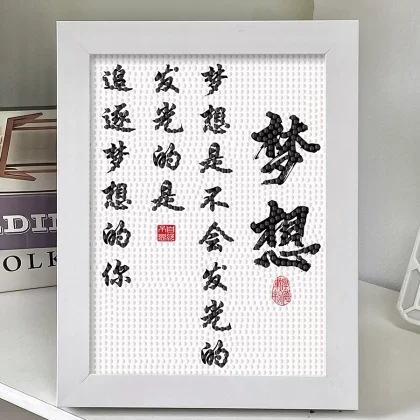 梦想
梦想是不会发光的
发光的是
追逐梦想的你